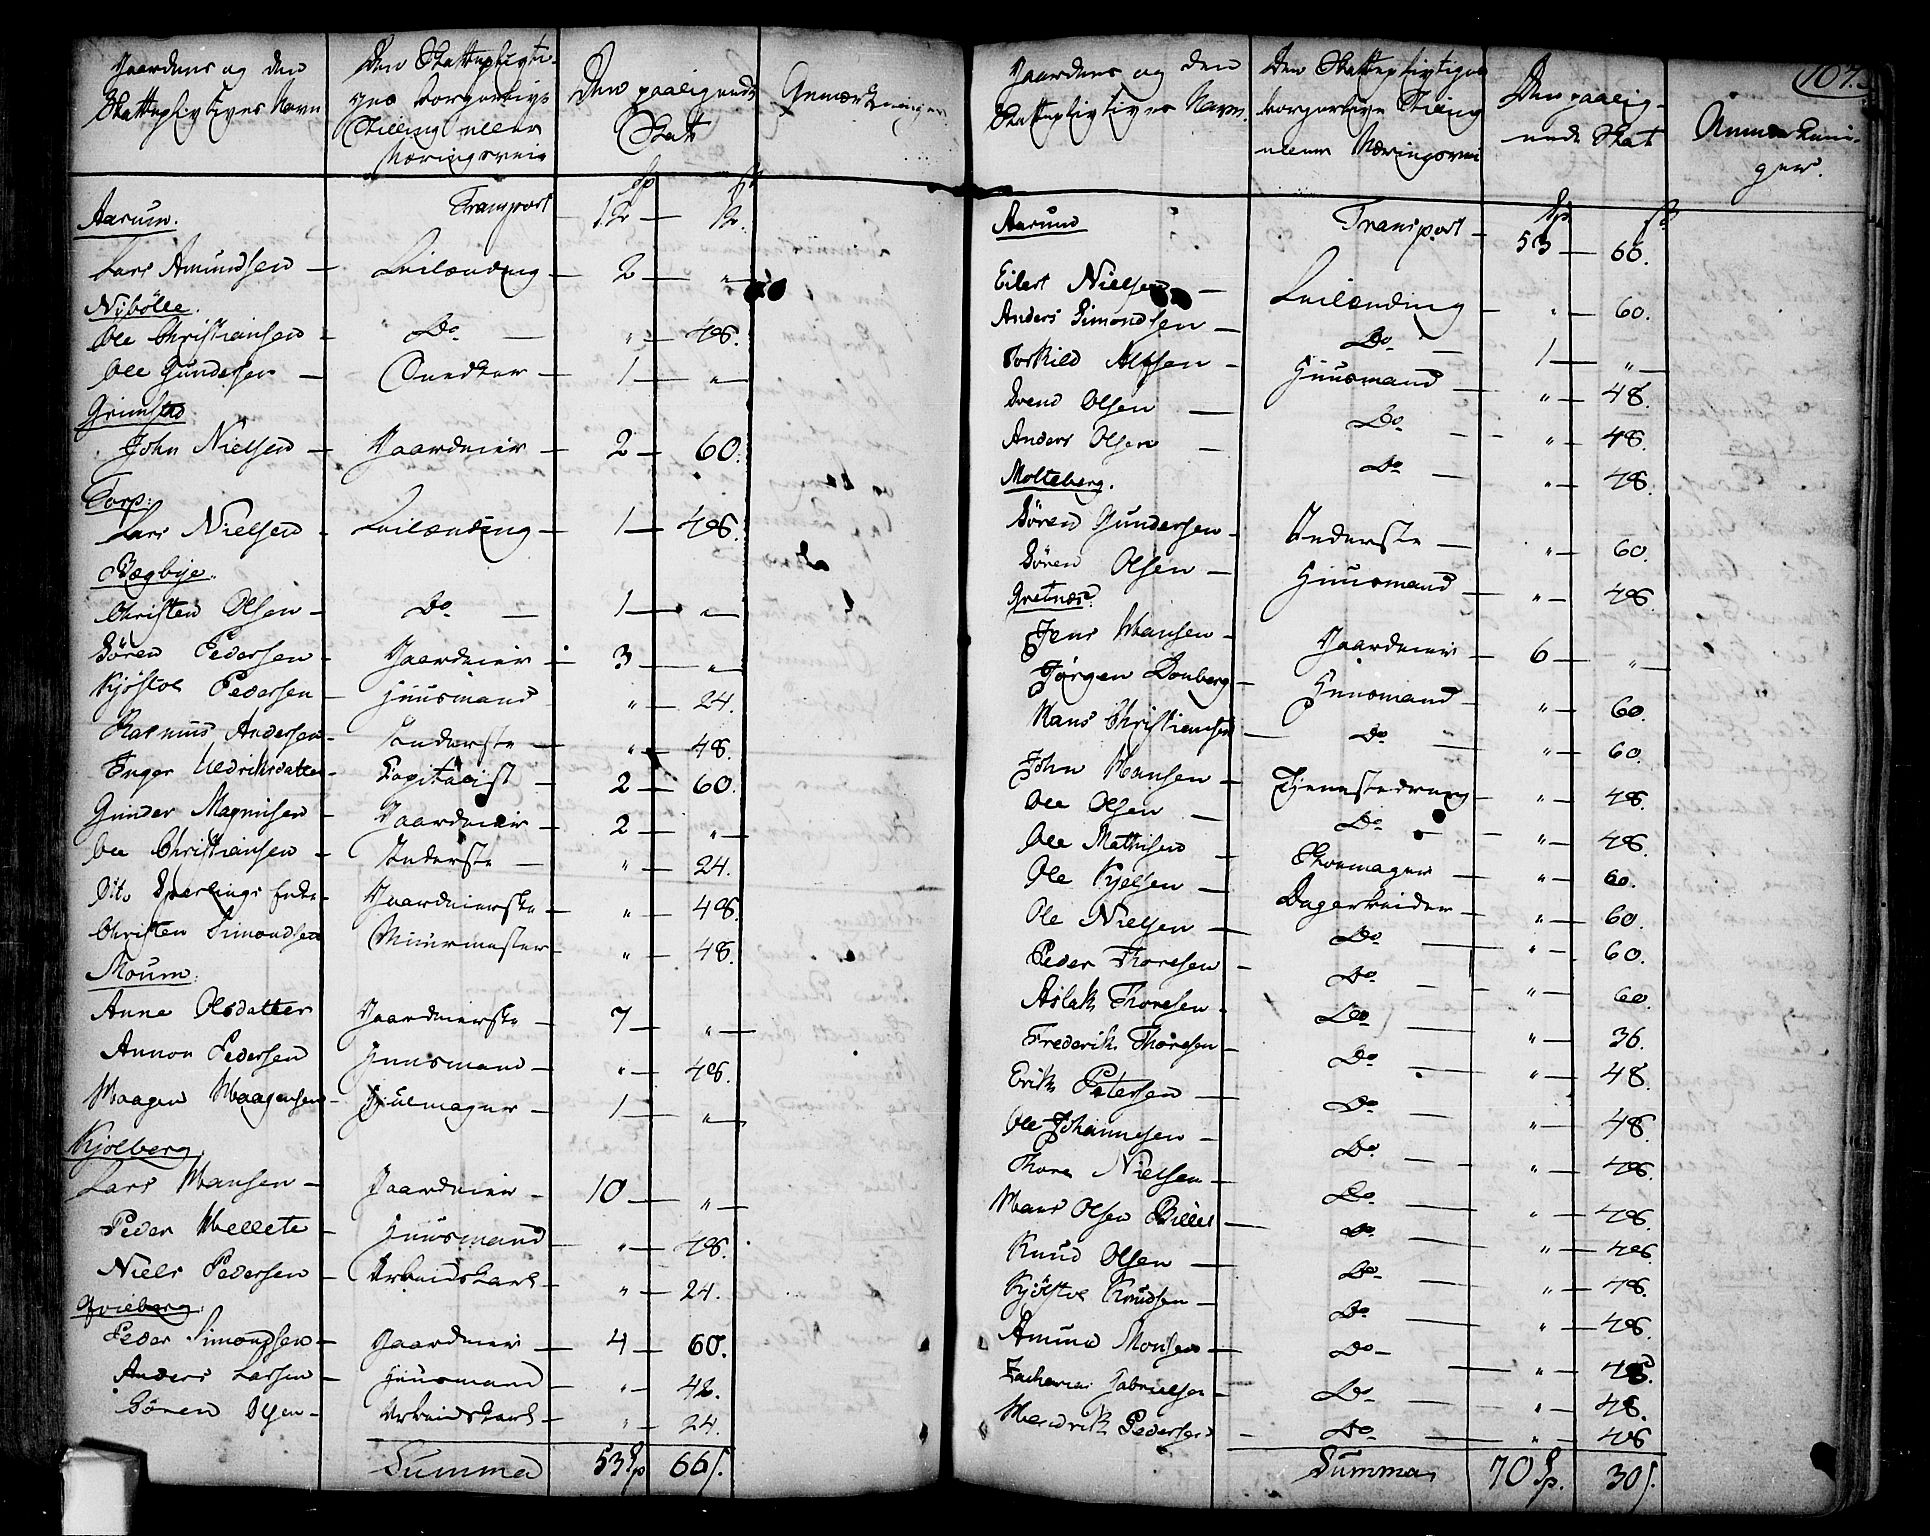 Gaardens og den Skattepligtiges Navn
Den Skattepligtiges borgerlige Stilling eller Næringsvei
Den paaligende Skat
Anmærkninger
Sp ſz
Aarum. Transport — 12 — 12.
Lars Amundsen — Leilænding — 2 — „
Nibölle.
Ole Christiansen — Do — „ — 48.
Ole Gundersen — — 1 — „
Grimstad
John Nielsen — Gaardeier — 2 — 60.
Torp:
Lars Nielsen — Leilænding — 1 — 48.
Bægbye.
Christen Olsen — Do — 1 — „
Sören Pedersen — Gaardeier — 3 — „
Kjöstol Pedersen — Huusmand „ — 24.
Rasmus Andersen — Inderste — „ — 48.
Inger Uldriksdatter — Capitalist — 2 — 60.
Gunder Magnusen — Gaardeier — 2 — „
Ole Christiansen — Inderste — „ — 24.
Dito Sperlings Enke — Gaardeierske — „ — 48.
Christen Simondsen Muurmester — „ — 48.
Moum.
Anne Olsdatter Gaardeierske — 7 — „
Annon Pedersen Huusmand — „ — 48.
Haagen Haagensen — Hjulmager — 1 — „
Kjölberg.
Lars Hansen — Gaardeier — 10 — „
Peder Hellete — Huusmand „ — 48.
Niels Pedersen — Arbeidskarl — „ — 24.
Evieberg.
Peder Simondsen — Gaardeier — 4 — 60.
Anders Larsen — Huusmand — „ — 42.
Sören Olsen — Arbeidskarl — „ — 24.
Summa 53 Sp 66 ſ.
107.
Gaardens og den Skattepligtiges Navn
Den Skattepligtiges borgerlige Stilling eller Næringsvei
Den paaligende Skat
Anmærkninger.
Sp ſz
Aarum Transport — 53 — 66.
Eilert Nielsen — Leilænding — „ — 60.
Anders Simondsen — Do — 1 — „
Torkild Alfsen — Huusmand — „ — 48.
Svend Olsen — Do — „ — 48.
Anders Olsen — Do — „ — 48.
Molteberg.
Sören Gundersen — Inderste — „ — 60.
Sören Olsen — Huusmand — „ — 48.
Gretnæs.
Jens Hansen — Gaardeier — 6 — „
Jörgen Donberg — Huusmand — „ — 60.
Hans Christiansen — Do — „ — 60.
John Hansen — Tjenestedreng — „ — 48.
Ole Olsen — Do — „ — 48.
Ole Mathisen — Skoemager — „ — 60.
Ole Kjelsen — Dagarbeider — „ — 60.
Ole Nielsen — Do — „ — 60.
Peder Thoresen — Do — „ — 60.
Aslak Thoresen — Do — „ — 36.
Frederik Thoresen — Do — „ — 48.
Erik Petersen — Do — „ — 48.
Ole Johannesen — Do — „ — 48.
Thore Nielsen — Do — „ — 48.
Hans Olsen Billet — Do — „ — 48.
Knud Olsen — Do — „ — 48.
Kjöstol Knudsen — Do — „ — 48.
Amund Monsen — Do — „ — 48.
Zacharias Gabrielsen — Do — „ — 48.
Hendrik Pedersen — Do — „ — 48
Summa 70 Sp. 30 ſ.